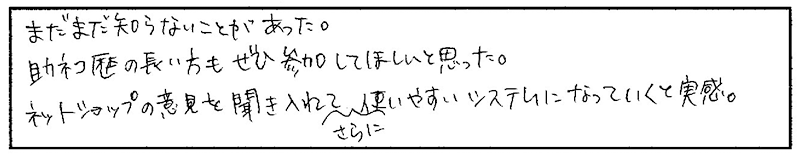 まだまだ知らないことがあった。
助ネコ歴の長い方もぜひ参加してほしいと思った。
ネットショップの意見を聞き入れてさらに使いやすいシステムになっていくと実感。